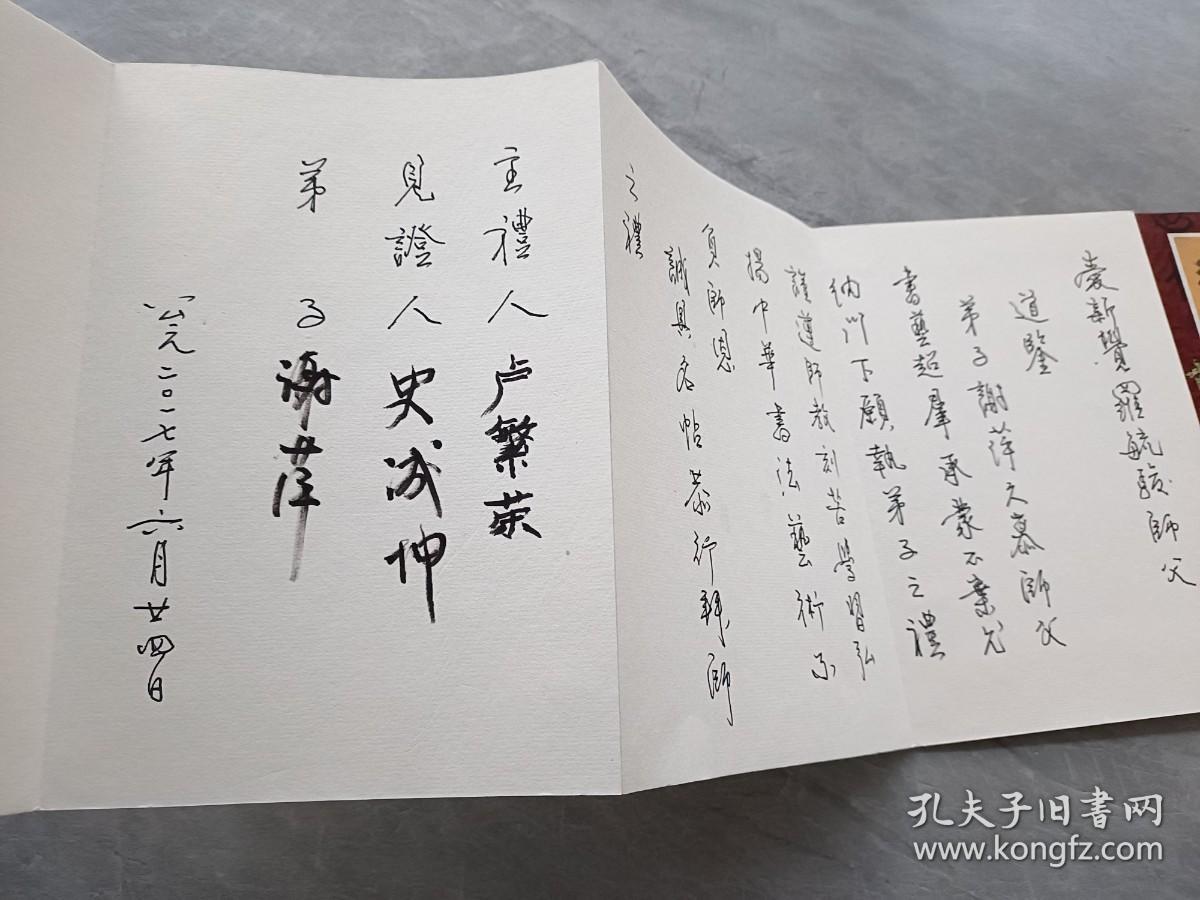 愛新覺羅毓駿師父
道鑒
弟子謝萍久慕師父
書藝超羣承蒙不棄允
納門下願執弟子之禮
謹遵師教刻苦學習弘
揚中華書法藝術不
負師恩
誠具名帖恭行拜師
之禮
主禮人卢繁荣
見證人史成坤
弟子谢萍
公元二〇一七年六月廿四日
孔夫子旧书网
www.kongfz.com